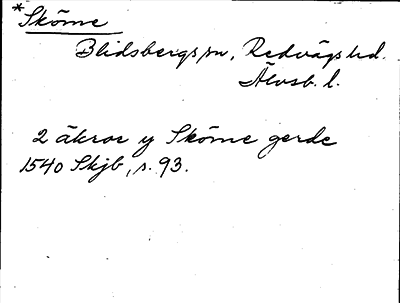 *Sköme
Blidsbergs sn, Redvägs hd.
Älvsb. l.
2 åkror y Sköme gerde
1540 Skjb, s. 93.